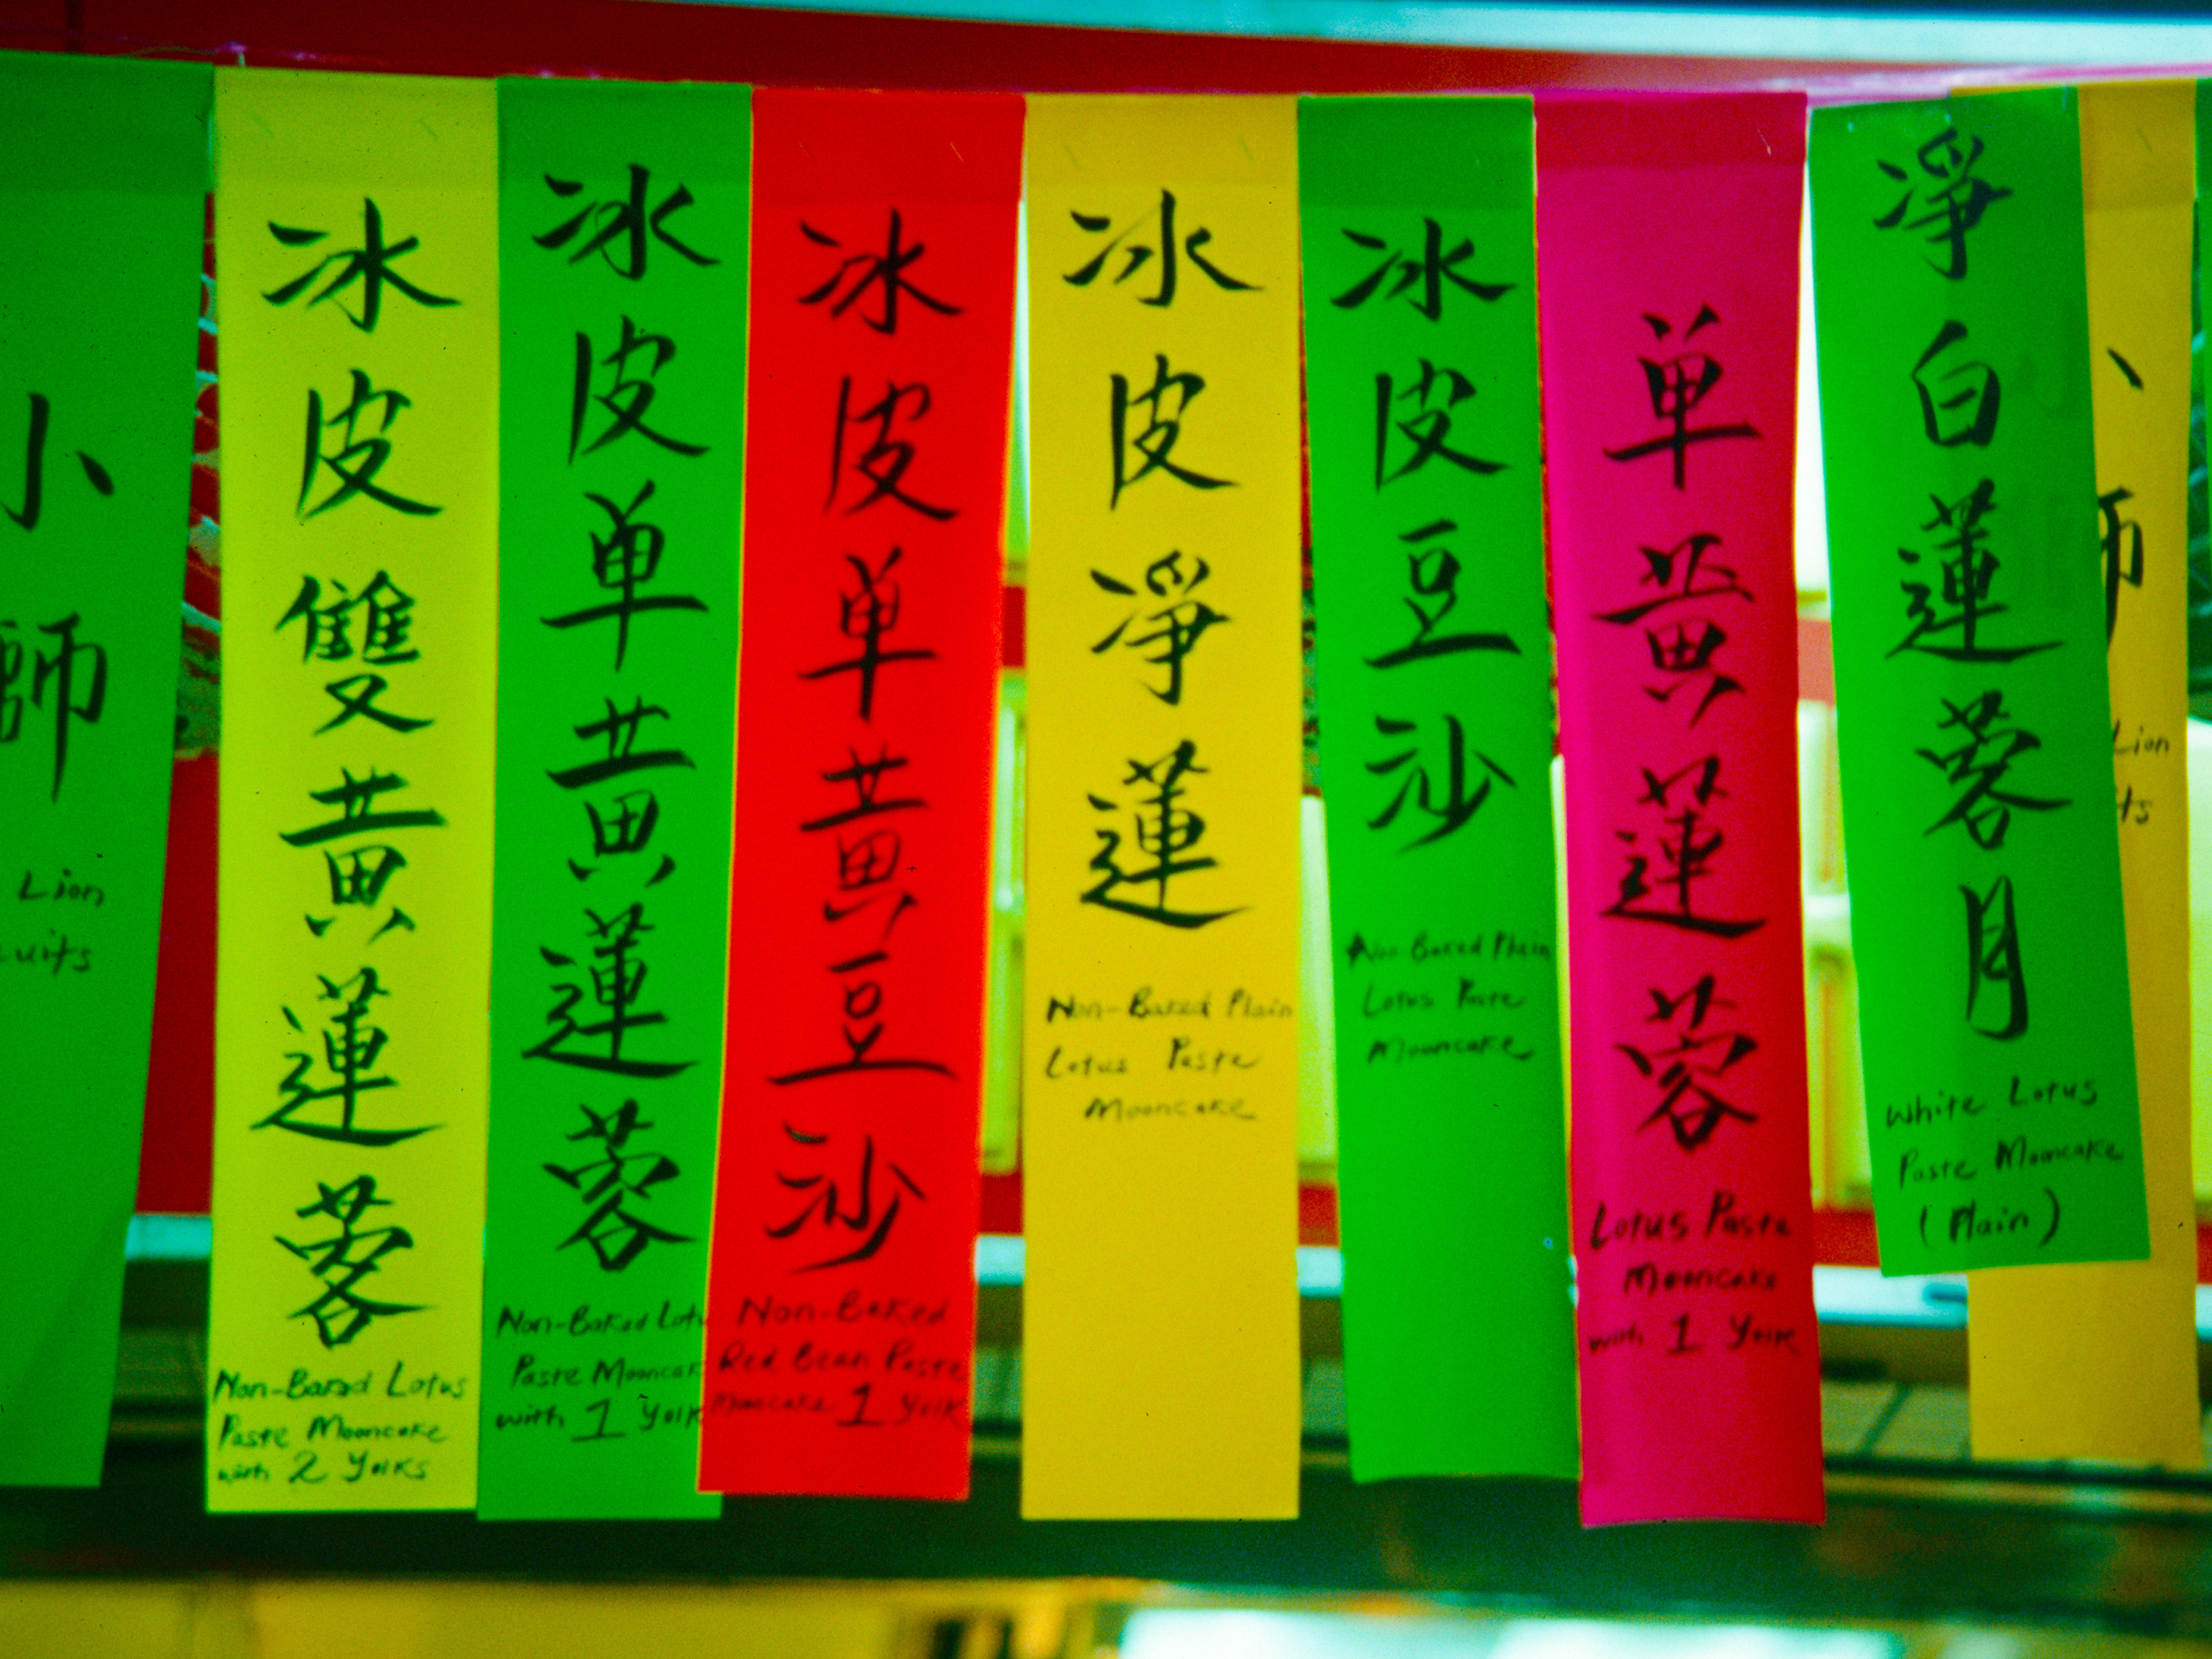 小
師
Lion
冰皮雙黃蓮蓉
Non-Baked Lotus
Paste Mooncake
with 2 Yolks
冰皮单黃蓮蓉
Non-Baked Lotu
Paste Mooncak
with 1 Yolk
冰皮单黃豆沙
Non-Baked
Red Bean Paste
Mooncake 1 Yolk
冰皮淨蓮
Non-Baked Plain
Lotus Paste
Mooncake
冰皮豆沙
Non-Baked Plain
Lotus Paste
Mooncake
单黃蓮蓉
Lotus Paste
Mooncake
with 1 Yolk
淨白蓮蓉月
White Lotus
Paste Mooncake
(Plain)
Lion